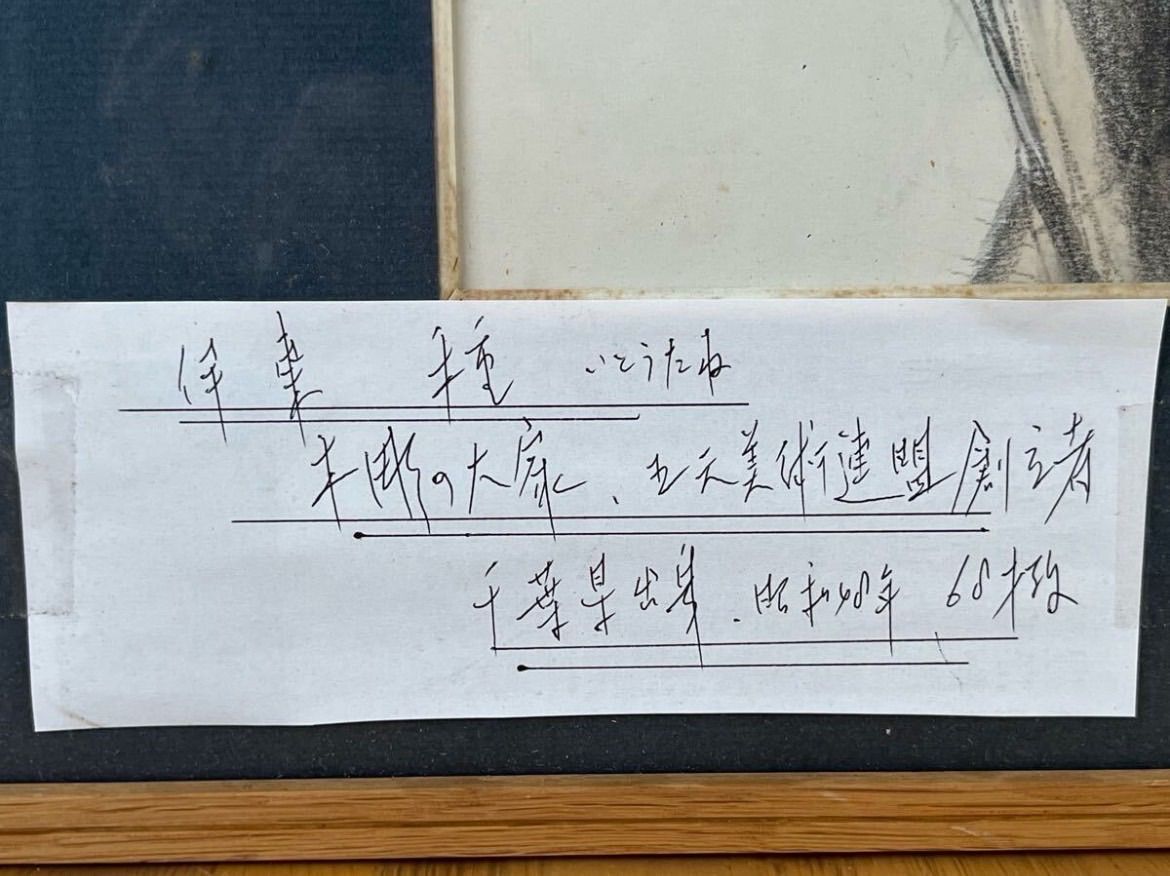 伊東 種 いとうたね
木彫の大家、五天美術連盟創立者
千葉県出身、昭和48年 68才歿